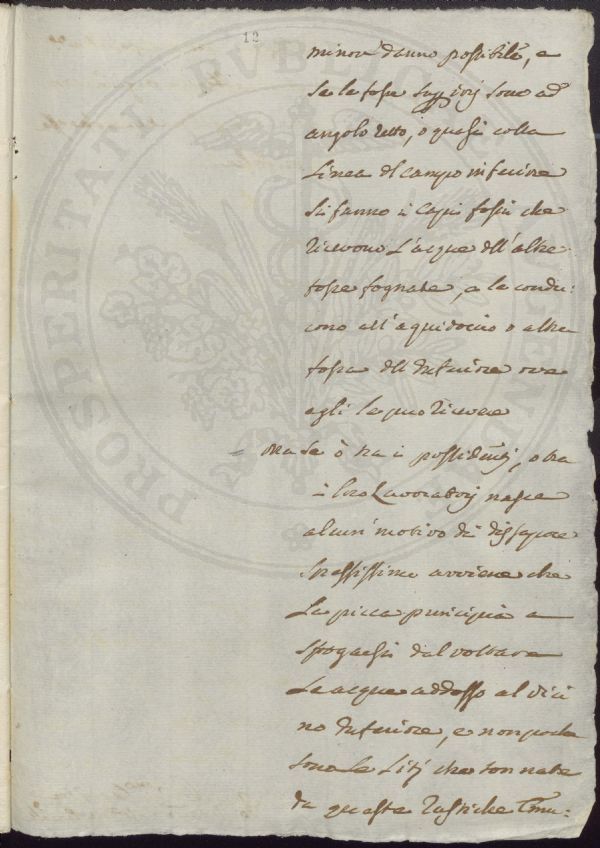 12
minor danno possibile, e
se le fosse supp.ri sono ad
angolo retto, o quasi colla
Linea del campo inferiore
si fanno i capi fossi che
ricevono L'acque dell'altre
fosse fognate, e le condu:
cono all'aquidoccio o altra
fossa dell'Inferiore ove
egli le può ricevere
= Ora se ò tra i possidenti, o tra
i loro Lavoratori nasce
alcun motivo di dissapore
spessissimo avviene che
La picca principia a
sfogarsi dal voltare
Le acque addosso al vici
no Inferiore, e non poche
sono le Liti che son nate
da queste rustiche
PROSPERITATI PUBLICAE AUGENDAE